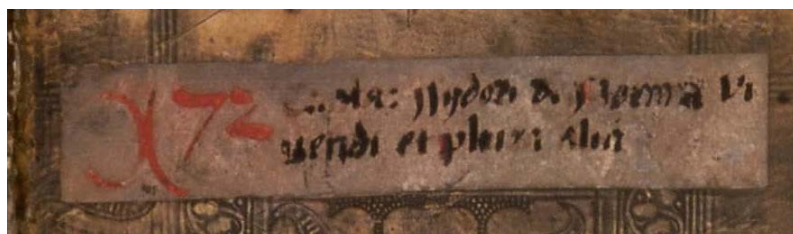 X 72
Ysidori de Norma Vi
uendi et plura alia